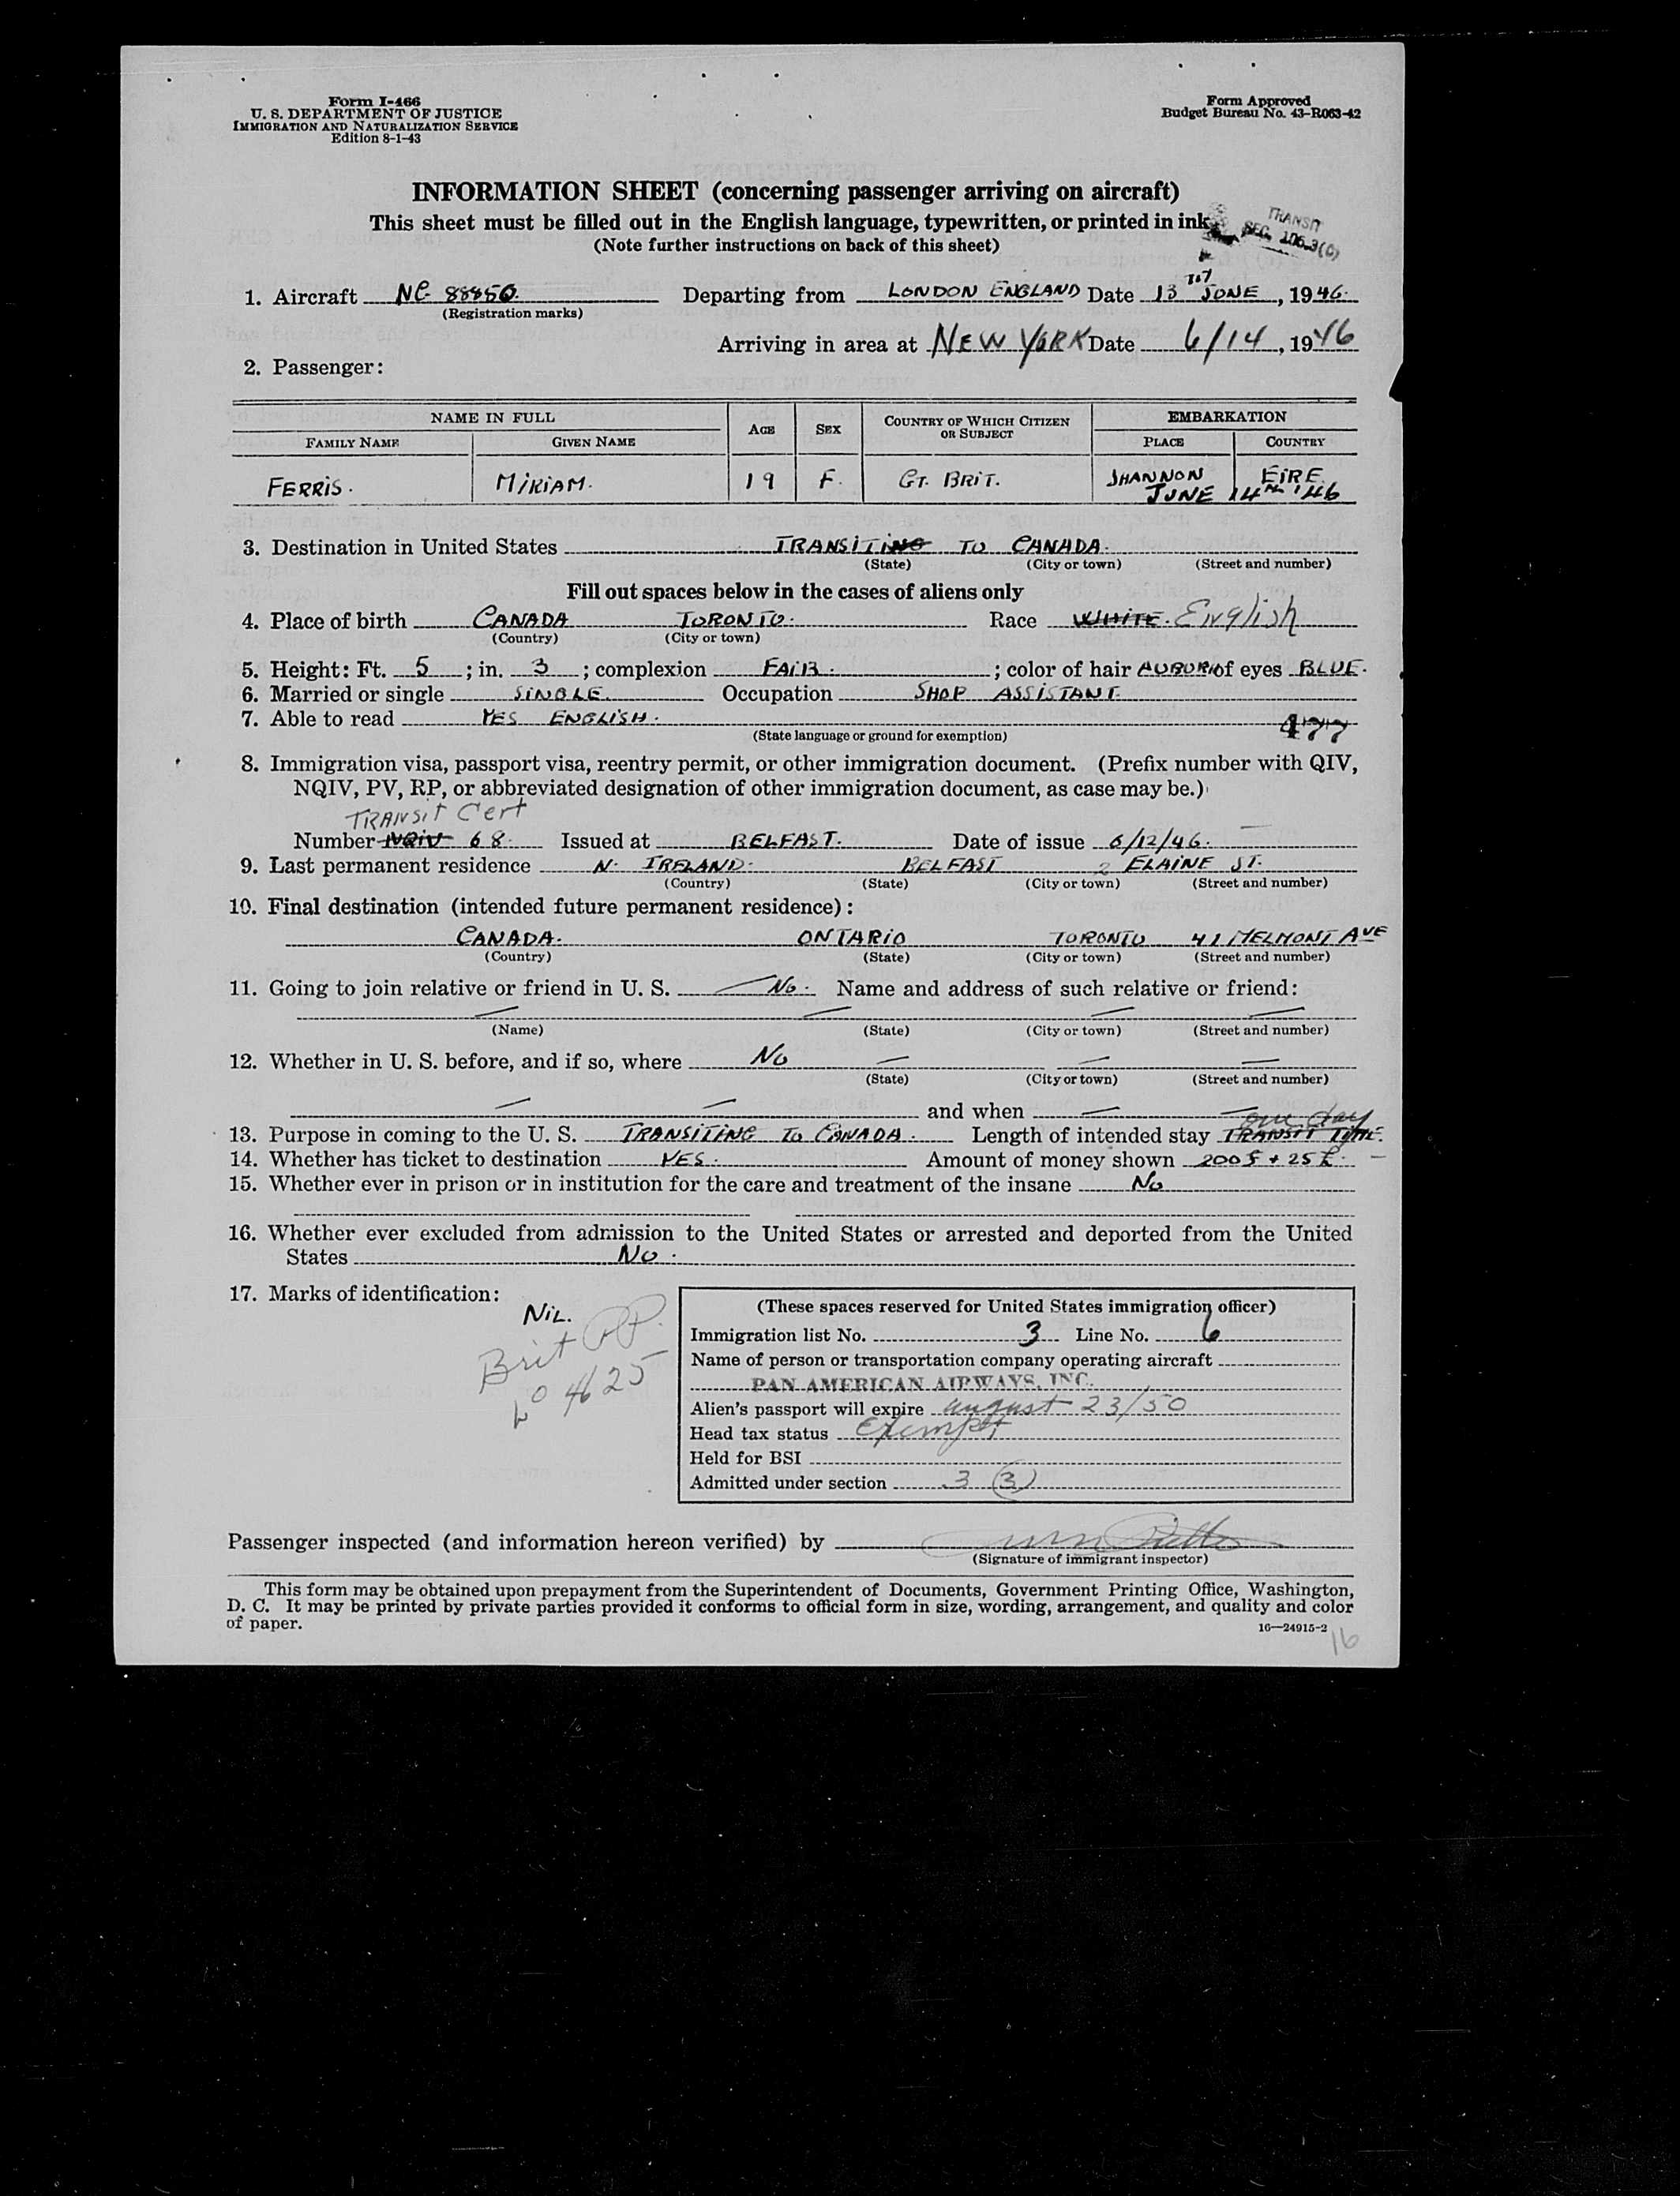 Form I-466
U. S. DEPARTMENT OF JUSTICE
IMMIGRATION AND NATURALIZATION SERVICE
Edition 8-1-43
Form Approved
Budget Bureau No. 43-R063-42
INFORMATION SHEET (concerning passenger arriving on aircraft)
This sheet must be filled out in the English language, typewritten, or printed in ink
(Note further instructions on back of this sheet)
TRANSIT
SEC. 106.3(C)
1. Aircraft NC 88850. Departing from LONDON ENGLAND Date 13 JUNE, 1946.
(Registration marks)
Arriving in area at NEW YORK Date 6/14, 1946
2. Passenger:
NAME IN FULL AGE SEX COUNTRY OF WHICH CITIZEN OR SUBJECT EMBARKATION
FAMILY NAME GIVEN NAME PLACE COUNTRY
FERRIS. MIRIAM. 19 F. GT. BRIT. SHANNON EIRE
JUNE 14TH '46
3. Destination in United States TRANSITING TO CANADA.
(State) (City or town) (Street and number)
Fill out spaces below in the cases of aliens only
4. Place of birth CANADA TORONTO. Race WHITE. English
(Country) (City or town)
5. Height: Ft. 5; in. 3; complexion FAIR.; color of hair AUBURN of eyes BLUE.
6. Married or single SINGLE. Occupation SHOP ASSISTANT.
7. Able to read YES ENGLISH.
(State language or ground for exemption)
477
8. Immigration visa, passport visa, reentry permit, or other immigration document. (Prefix number with QIV,
NQIV, PV, RP, or abbreviated designation of other immigration document, as case may be.)
TRANSIT Cert
Number NQIV 68. Issued at BELFAST. Date of issue 6/12/46.
9. Last permanent residence N. IRELAND. BELFAST 2 ELAINE ST.
(Country) (State) (City or town) (Street and number)
10. Final destination (intended future permanent residence):
CANADA. ONTARIO TORONTO 41 MELMONT AVE
(Country) (State) (City or town) (Street and number)
11. Going to join relative or friend in U. S. No. Name and address of such relative or friend:
(Name) (State) (City or town) (Street and number)
12. Whether in U. S. before, and if so, where No
(State) (City or town) (Street and number)
and when
one day
13. Purpose in coming to the U. S. TRANSITING TO CANADA. Length of intended stay TRANSIT TIME.
14. Whether has ticket to destination YES. Amount of money shown 200$ + 25£.
15. Whether ever in prison or in institution for the care and treatment of the insane No
16. Whether ever excluded from admission to the United States or arrested and deported from the United
States No.
17. Marks of identification:
NIL.
Brit PP.
LO 4625
(These spaces reserved for United States immigration officer)
Immigration list No. 3 Line No. 6
Name of person or transportation company operating aircraft
PAN AMERICAN AIRWAYS, INC.
Alien's passport will expire august 23/50
Head tax status Exempt
Held for BSI
Admitted under section 3 (3)
Passenger inspected (and information hereon verified) by
(Signature of immigrant inspector)
This form may be obtained upon prepayment from the Superintendent of Documents, Government Printing Office, Washington,
D. C. It may be printed by private parties provided it conforms to official form in size, wording, arrangement, and quality and color
of paper.
16—24915-2
16